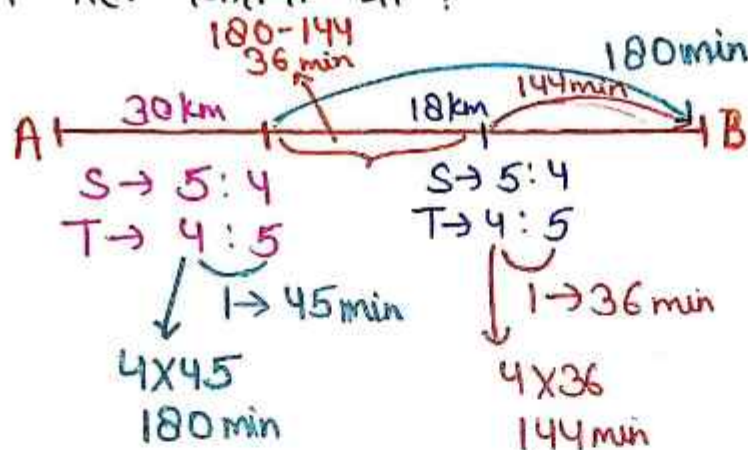 180-144
36 min
180min
A 30km 18km 144min B
S→ 5:4
T→ 4:5
1→ 45min
4X45
180min
S→ 5:4
T→ 4:5
1→36min
4X36
144min